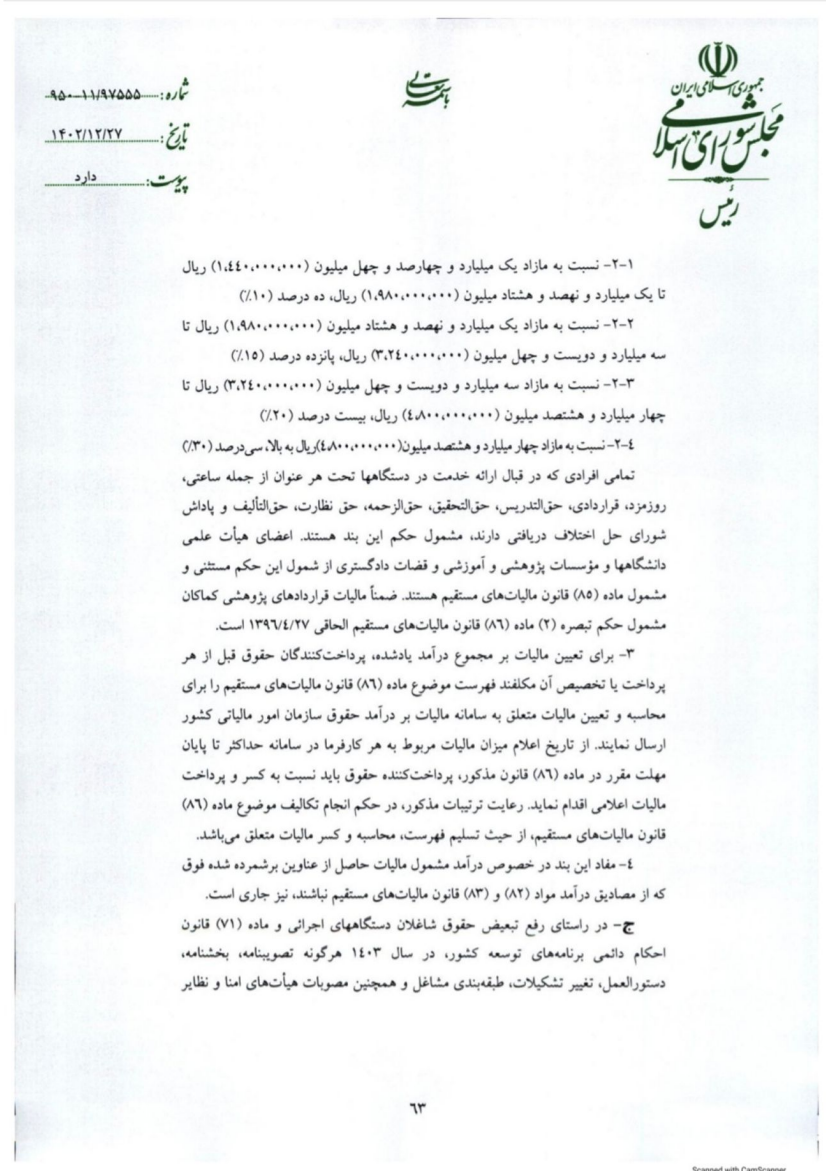 جمهوری اسلامی ایران
مجلس شورای اسلامی
رئیس
باسمه تعالی
شماره: ۹۵۰-۱۱/۹۷۵۵۵
تاریخ: ۱۴۰۲/۱۲/۲۷
پیوست: دارد
۲-۱- نسبت به مازاد یک میلیارد و چهارصد و چهل میلیون (۱،۴۴۰،۰۰۰،۰۰۰) ریال
تا یک میلیارد و نهصد و هشتاد میلیون (۱،۹۸۰،۰۰۰،۰۰۰) ریال، ده درصد (۱۰٪)
۲-۲- نسبت به مازاد یک میلیارد و نهصد و هشتاد میلیون (۱،۹۸۰،۰۰۰،۰۰۰) ریال تا
سه میلیارد و دویست و چهل میلیون (۳،۲۴۰،۰۰۰،۰۰۰) ریال، پانزده درصد (۱۵٪)
۲-۳- نسبت به مازاد سه میلیارد و دویست و چهل میلیون (۳،۲۴۰،۰۰۰،۰۰۰) ریال تا
چهار میلیارد و هشتصد میلیون (۴،۸۰۰،۰۰۰،۰۰۰) ریال، بیست درصد (۲۰٪)
۲-۴- نسبت به مازاد چهار میلیارد و هشتصد میلیون(۴،۸۰۰،۰۰۰،۰۰۰)ریال به بالا، سی‌درصد (۳۰٪)
تمامی افرادی که در قبال ارائه خدمت در دستگاهها تحت هر عنوان از جمله ساعتی،
روزمزد، قراردادی، حق‌التدریس، حق‌التحقیق، حق‌الزحمه، حق نظارت، حق‌التألیف و پاداش
شورای حل اختلاف دریافتی دارند، مشمول حکم این بند هستند. اعضای هیأت علمی
دانشگاهها و مؤسسات پژوهشی و آموزشی و قضات دادگستری از شمول این حکم مستثنی و
مشمول ماده (۸۵) قانون مالیات‌های مستقیم هستند. ضمناً مالیات قراردادهای پژوهشی کماکان
مشمول حکم تبصره (۲) ماده (۸۶) قانون مالیات‌های مستقیم الحاقی ۱۳۹۶/۴/۲۷ است.
۳- برای تعیین مالیات بر مجموع درآمد یادشده، پرداخت‌کنندگان حقوق قبل از هر
پرداخت یا تخصیص آن مکلفند فهرست موضوع ماده (۸۶) قانون مالیات‌های مستقیم را برای
محاسبه و تعیین مالیات متعلق به سامانه مالیات بر درآمد حقوق سازمان امور مالیاتی کشور
ارسال نمایند. از تاریخ اعلام میزان مالیات مربوط به هر کارفرما در سامانه حداکثر تا پایان
مهلت مقرر در ماده (۸۶) قانون مذکور، پرداخت‌کننده حقوق باید نسبت به کسر و پرداخت
مالیات اعلامی اقدام نماید. رعایت ترتیبات مذکور، در حکم انجام تکالیف موضوع ماده (۸۶)
قانون مالیات‌های مستقیم، از حیث تسلیم فهرست، محاسبه و کسر مالیات متعلق می‌باشد.
۴- مفاد این بند در خصوص درآمد مشمول مالیات حاصل از عناوین برشمرده شده فوق
که از مصادیق درآمد مواد (۸۲) و (۸۳) قانون مالیات‌های مستقیم نباشند، نیز جاری است.
ج- در راستای رفع تبعیض حقوق شاغلان دستگاههای اجرائی و ماده (۷۱) قانون
احکام دائمی برنامه‌های توسعه کشور، در سال ۱۴۰۳ هرگونه تصویبنامه، بخشنامه،
دستورالعمل، تغییر تشکیلات، طبقه‌بندی مشاغل و همچنین مصوبات هیأت‌های امنا و نظایر
۶۳
Scanned with CamScanner